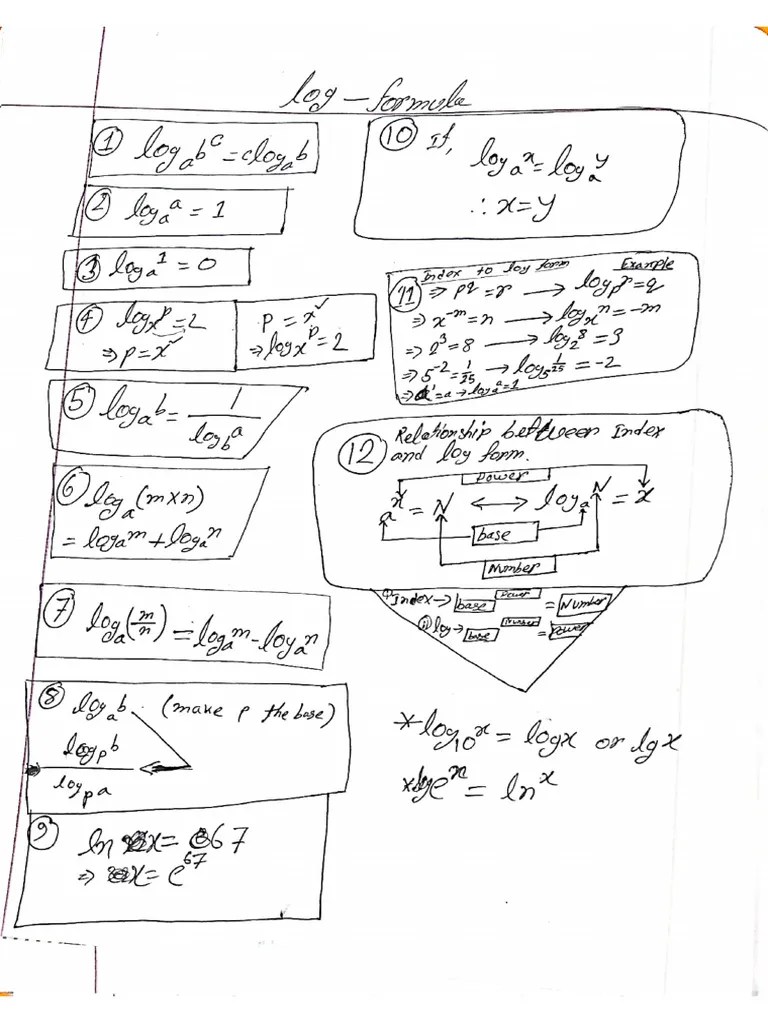 log - formula
① logₐbᶜ = clogₐb
② logₐᵃ = 1
③ logₐ¹ = 0
④ logₓᵖ = 2
⇒ p = x²
p = x²
⇒ logₓᵖ = 2
⑤ logₐᵇ = 1/log_b^a
⑥ logₐ(m×n)
= logₐᵐ + logₐⁿ
⑦ logₐ(m/n) = logₐᵐ - logₐⁿ
⑧ logₐb. (make p the base)
logₚb
logₚa
⑨ ln x = 67
⇒ x = e⁶⁷
⑩ If,
logₐˣ = logₐʸ
∴ x = y
⑪ Index to log form Example
⇒ pq = r → logₚʳ = q
⇒ x⁻ᵐ = n → logₓⁿ = -m
⇒ 2³ = 8 → log₂⁸ = 3
⇒ 5⁻² = 1/25 → log₅ 1/25 = -2
⇒ a¹ = a → logₐᵃ = 1
⑫ Relationship between Index
and log form.
Power
aˣ = N ↔ logₐᴺ = x
base
Number
① Index → base Power = Number
⑪ log → base Number = Power
* log₁₀ˣ = logx or lgx
* logeˣ = lnˣ